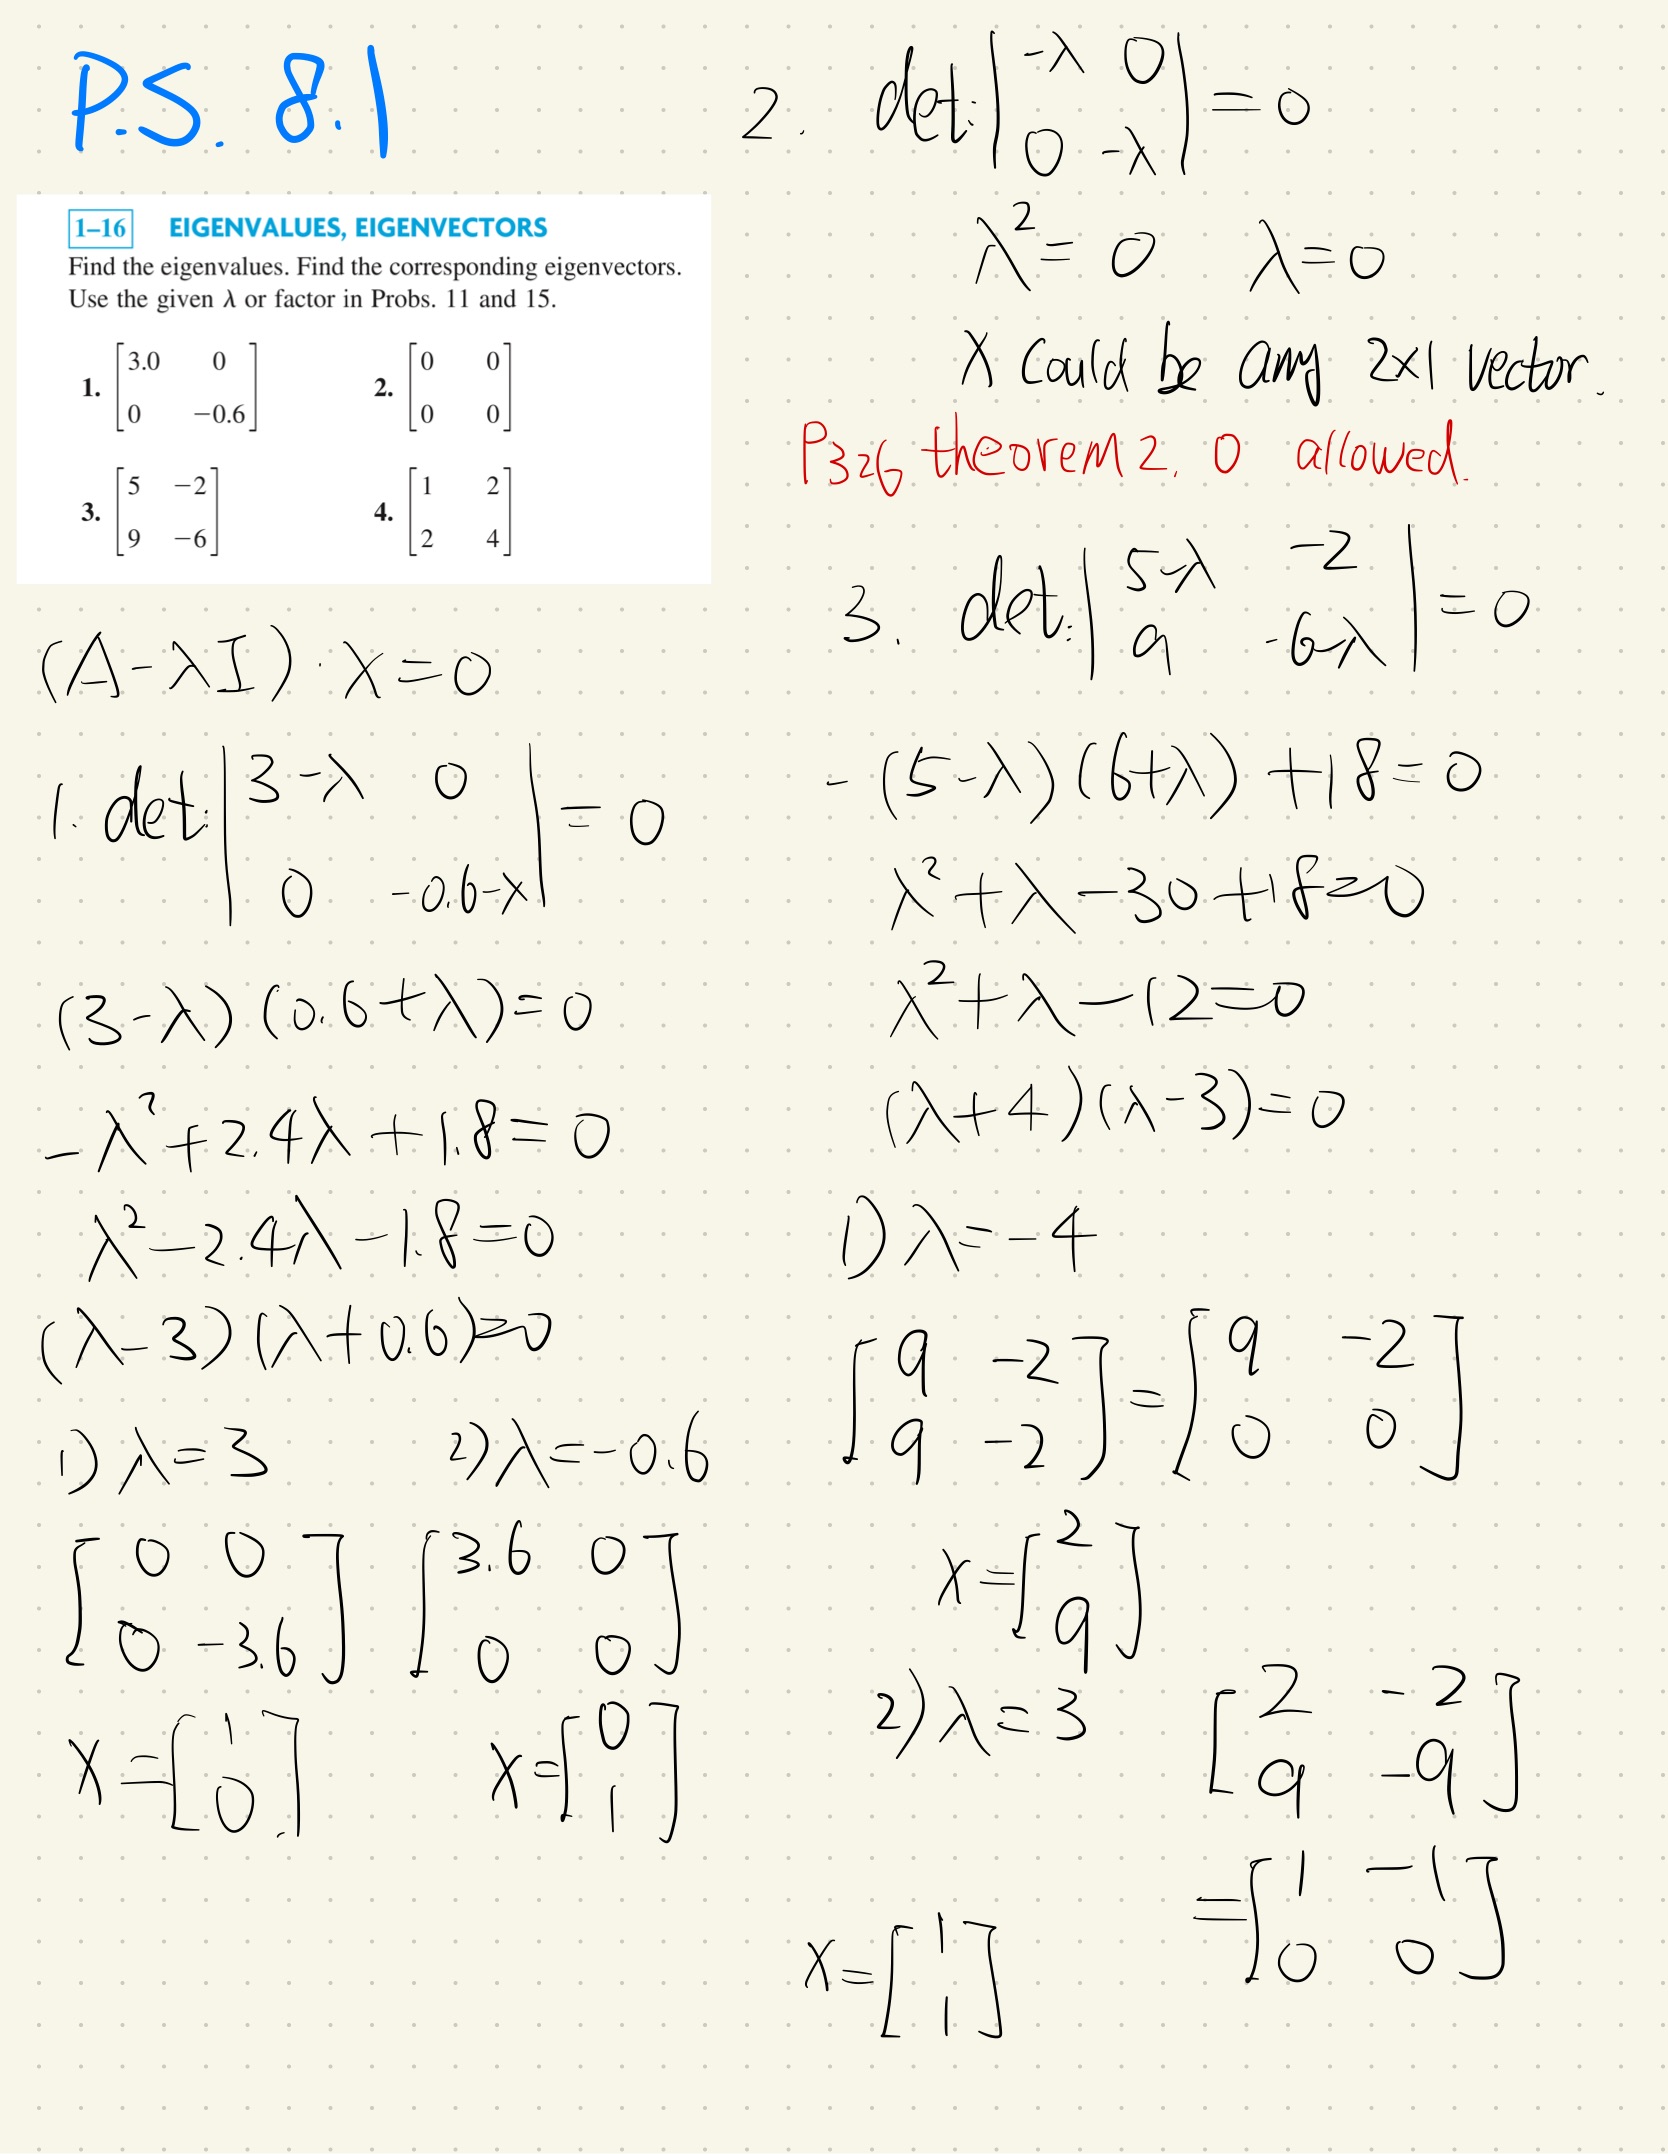 P.S. 8.1
1–16 EIGENVALUES, EIGENVECTORS
Find the eigenvalues. Find the corresponding eigenvectors.
Use the given λ or factor in Probs. 11 and 15.
1. [3.0 0
0 −0.6]
2. [0 0
0 0]
3. [5 −2
9 −6]
4. [1 2
2 4]
(A-λI)·x=0
1. det: |3-λ 0
0 -0.6-λ| = 0
(3-λ)(0.6+λ)=0
-λ²+2.4λ+1.8=0
λ²-2.4λ-1.8=0
(λ-3)(λ+0.6)=0
1) λ=3
[0 0
0 -3.6]
x=[1
0]
2) λ=-0.6
[3.6 0
0 0]
x=[0
1]
2. det: |-λ 0
0 -λ| = 0
λ²=0 λ=0
x could be any 2x1 vector.
P326 theorem 2. 0 allowed.
3. det: |5-λ -2
9 -6-λ| = 0
-(5-λ)(6+λ)+18=0
λ²+λ-30+18=0
λ²+λ-12=0
(λ+4)(λ-3)=0
1) λ=-4
[9 -2
9 -2] = [9 -2
0 0]
x=[2
9]
2) λ=3
[2 -2
9 -9]
=[1 -1
0 0]
x=[1
1]